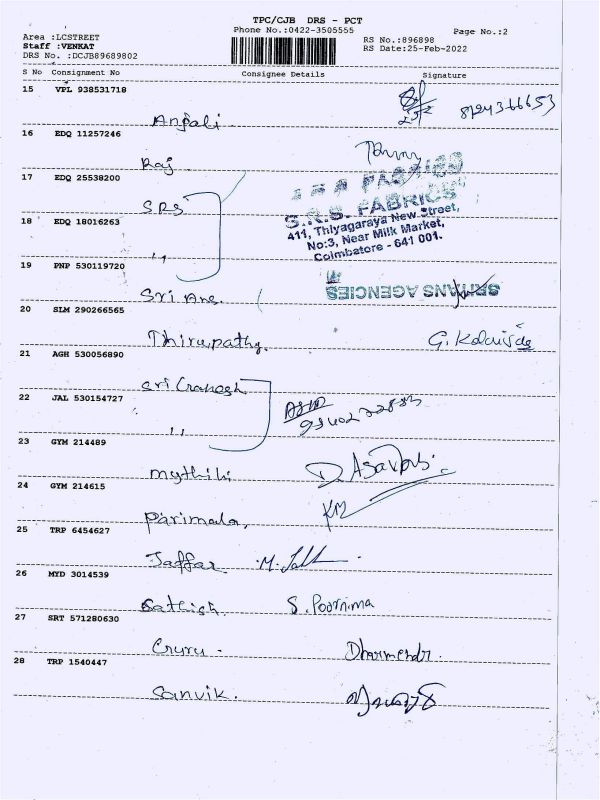 TPC/CJB DRS - PCT
Phone No.:0422-3505555
Page No.:2
Area :LCSTREET
Staff :VENKAT
DRS No. :DCJB89689802
RS No.:896898
RS Date:25-Feb-2022
S No Consignment No Consignee Details Signature
15 VPL 938531718
Anjali.
25/2
8124366653
16 EDQ 11257246
Raj
17 EDQ 25538200
SRS
S.R.S. FABRICS
411, Thiyagaraya New Street,
No:3, Near Milk Market,
Coimbatore - 641 001.
18 EDQ 18016263
,,
19 PNP 530119720
Sri Ans.
SRI ANS AGENCIES
20 SLM 290266565
Thirupathy.
21 AGH 530056890
Sri Ganesh
22 JAL 530154727
,,
23 GYM 214489
mythili
24 GYM 214615
Parimala,
25 TRP 6454627
Jaffar
26 MYD 3014539
Sathish.
S. Poornima
27 SRT 571280630
Guru.
Dharmendr.
28 TRP 1540447
Sanvik.